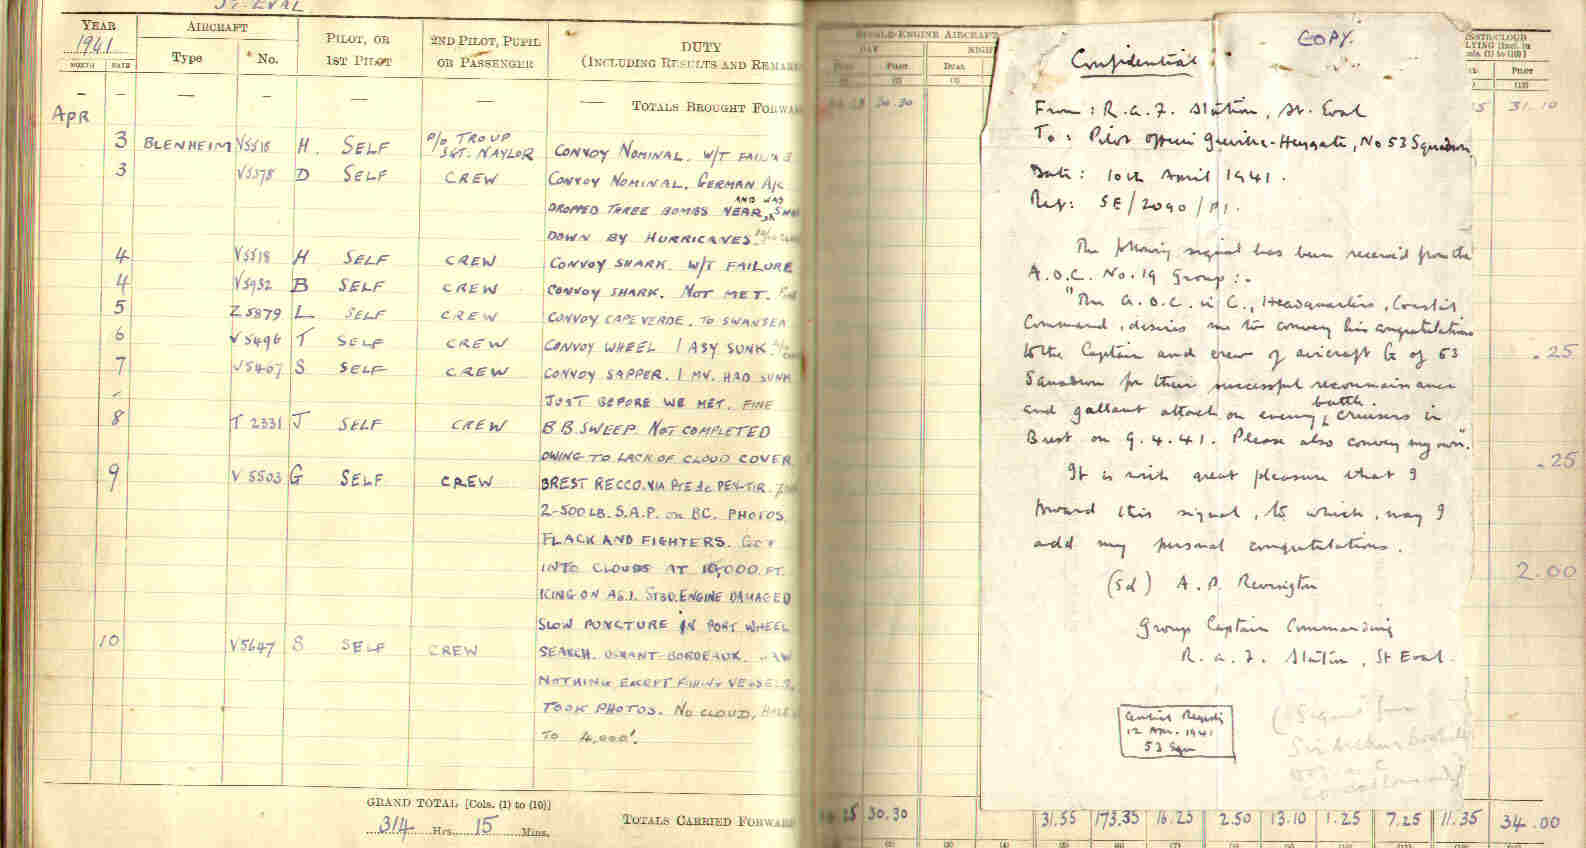 ST. EVAL
YEAR AIRCRAFT PILOT, OR 2ND PILOT, PUPIL DUTY
1941 Type No. 1ST PILOT OR PASSENGER (INCLUDING RESULTS AND REMARKS
MONTH DATE
— — — — — — — TOTALS BROUGHT FORWARD
APR
3 BLENHEIM V5518 H. SELF P/O TROUP
SGT. NAYLOR CONVOY NOMINAL. W/T FAILURE
3 V5378 D SELF CREW CONVOY NOMINAL. GERMAN A/C
DROPPED THREE BOMBS NEAR, AND WAS SHOT
DOWN BY HURRICANES.
4 V5518 H SELF CREW CONVOY SHARK. W/T FAILURE
4 V5932 B SELF CREW CONVOY SHARK. NOT MET.
5 Z5879 L SELF CREW CONVOY CAPE VERDE. TO SWANSEA
6 V5496 T SELF CREW CONVOY WHEEL 1 ASY SUNK
7 V5467 S SELF CREW CONVOY SAPPER. 1 MV. HAD SUNK
JUST BEFORE WE MET. FINE
8 T 2331 J SELF CREW B.B. SWEEP. NOT COMPLETED
OWING TO LACK OF CLOUD COVER
9 V 5503 G SELF CREW BREST RECCO. VIA Pte de PEN-TIR.
2-500LB. S.A.P. on BC. PHOTOS.
FLACK AND FIGHTERS. GOT
INTO CLOUDS AT 10,000.FT.
KING ON A51. STBD. ENGINE DAMAGED
SLOW PUNCTURE IN PORT WHEEL
10 V5647 S SELF CREW SEARCH. USHANT-BORDEAUX. SAW
NOTHING EXCEPT FISHING VESSELS.
TOOK PHOTOS. NO CLOUD,
TO 4,000'.
GRAND TOTAL [Cols. (1) to (10)]
314 Hrs. 15 Mins. TOTALS CARRIED FORWARD
SINGLE-ENGINE AIRCRAFT
DAY NIGHT
PILOT DUAL PILOT
(2) (3) (13)
30.30 31.10
.25
.25
2.00
COPY.
Confidential
From: R.A.F. Station, St. Eval
To: Pilot Officer Greville-Heygate, No 53 Squadron
Date: 10th April 1941.
Ref: SE/2090/P1.
The following signal has been received from the
A.O.C. No.19 Group:-
"The A.O.C. in C., Headquarters, Coastal
Command, desires me to convey his congratulations
to the Captain and crew of aircraft G of 53
Squadron for their successful reconnaissance
and gallant attack on enemy battle cruisers in
Brest on 9.4.41. Please also convey my own".
It is with great pleasure that I
forward this signal, to which, may I
add my personal congratulations.
(Sd) A.P. Revington
Group Captain Commanding
R.A.F. Station, St Eval.
Central Registry
12 Apr. 1941
53 Sqn
(Signal from
Sir Arthur
30.30 31.55 173.35 16.25 2.50 13.10 1.25 7.25 11.35 34.00